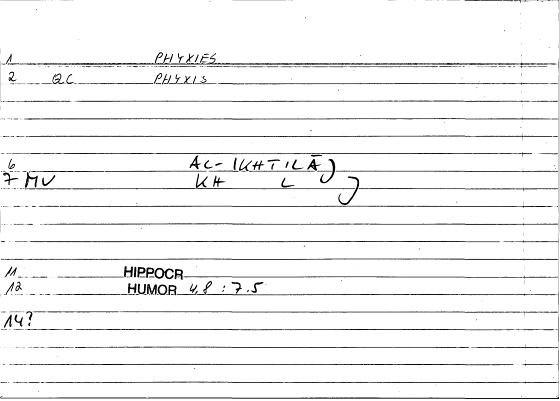 1 PHYXIES
2 QC PHYXIS
6 AL-IKHTILĀJ
7 MV KH L J
11 HIPPOCR
12 HUMOR 4,8 : 7.5
14?